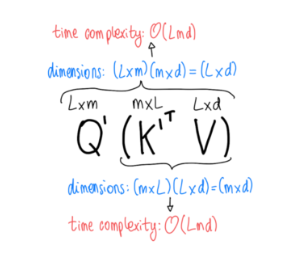 time complexity: O(Lmd)
dimensions: (L×m)(m×d)=(L×d)
L×m m×L L×d
Q' (K'ᵀ V)
dimensions: (m×L)(L×d)=(m×d)
time complexity: O(Lmd)